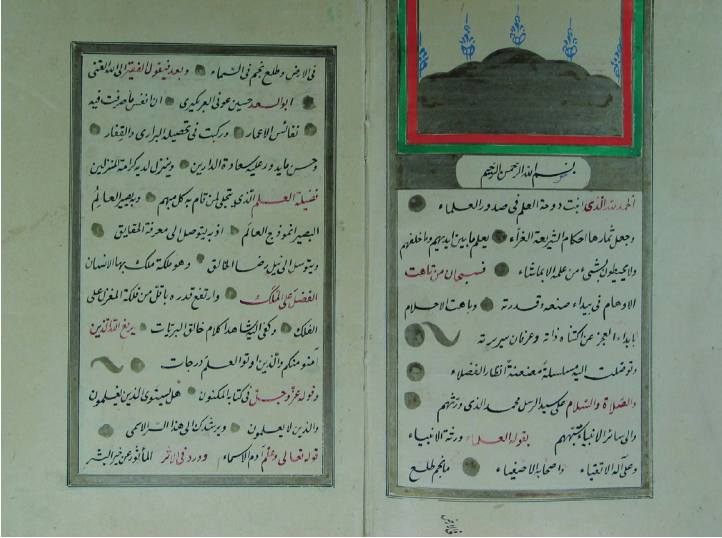 بسم الله الرحمن الرحيم
الحمد لله الذى انبت دوحة العلم فى صدور العلماء
وجعل ثمارها احكام الشريعة الغراء يعلم ما بين ايديهم وما خلفهم
ولا يحيطون بشىء من علمه الا بما شاء فسبحان من تاهت
الاوهام فى بيداء صنعه وقدرته وباهت الاحلام
بابداء العجز عن اكتناه ذاته وعرفان سر سرته
وتوصلت اليه سلسلة معنعنة انظار الفضلاء
والصلاة والسلام على سيد الرسل محمد الذى ورثهم
والى سائر الانبياء بقوله العلماء ورثة الانبياء
وعلى آله الاتقياء واصحابه الاصفياء ما نجم طلع
فى الارض
فى الارض وطلع نجم فى السماء وبعد فيقول الفقير الى الله الغنى
ابو السعد حسين عونى العربكيرى ان انفس ما صرفت فيه
نفائس الاعمار وركبت فى تحصيله البرارى والقفار
سعادة الدارين وينزل لديه كرامة المنزلين
فضيلة العلم الذى يتجلى لمن تام به كل مبهم ويصير العالم
البصير انموذج العالم اذ به يتوصل الى معرفة الحقايق
ويتوسل الى نيل رضا الخالق وهو ملكة ملك بها الانسان
الفضل على الملك وارتفع قدره باقل من فلكة المغزل على
الفلك وكفى اليه شاهدا كلام خالق البريات يرفع الله الذين
آمنوا منكم والذين اوتوا العلم درجات
وقوله عز وجل فى كتابه المكنون هل يستوى الذين يعلمون
والذين لا يعلمون ويرشدك الى هذا
قوله تعالى وعلم آدم الاسماء وورد فى الاثر المأثور عن خير البشر